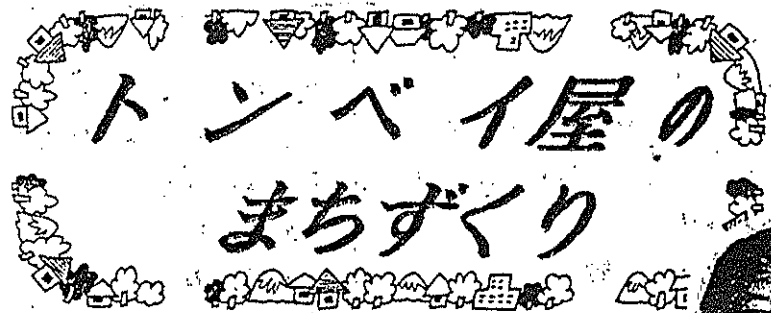 トンベイ屋の
まちずくり